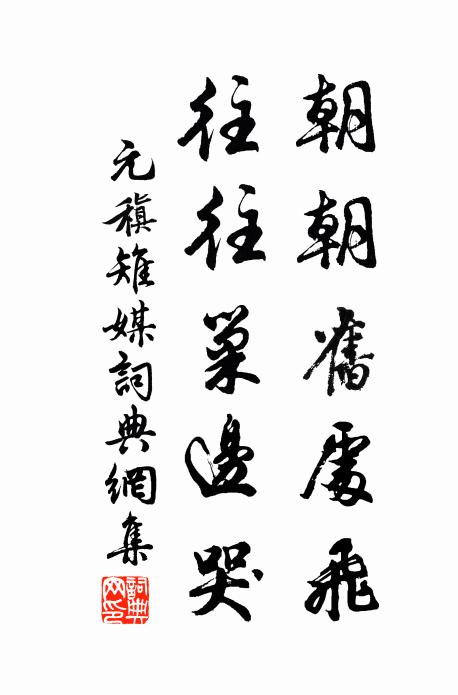 朝朝舊處飛
往往巢邊哭
元稹雉媒詞典網集
詞典網印